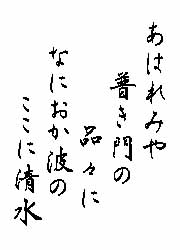 あはれみや
普き門の
品々に
なにおか波の
ここに清水